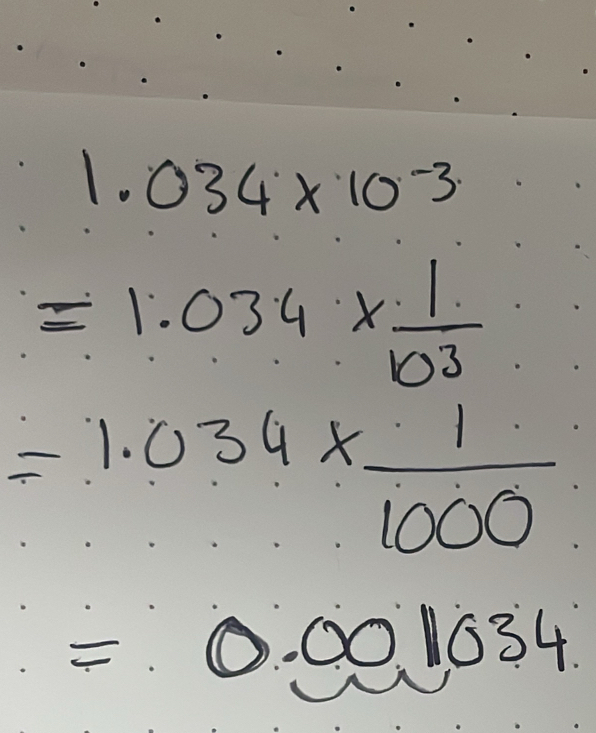 1.034 × 10⁻³
= 1.034 × 1/10³
= 1.034 × 1/1000
= 0.001034